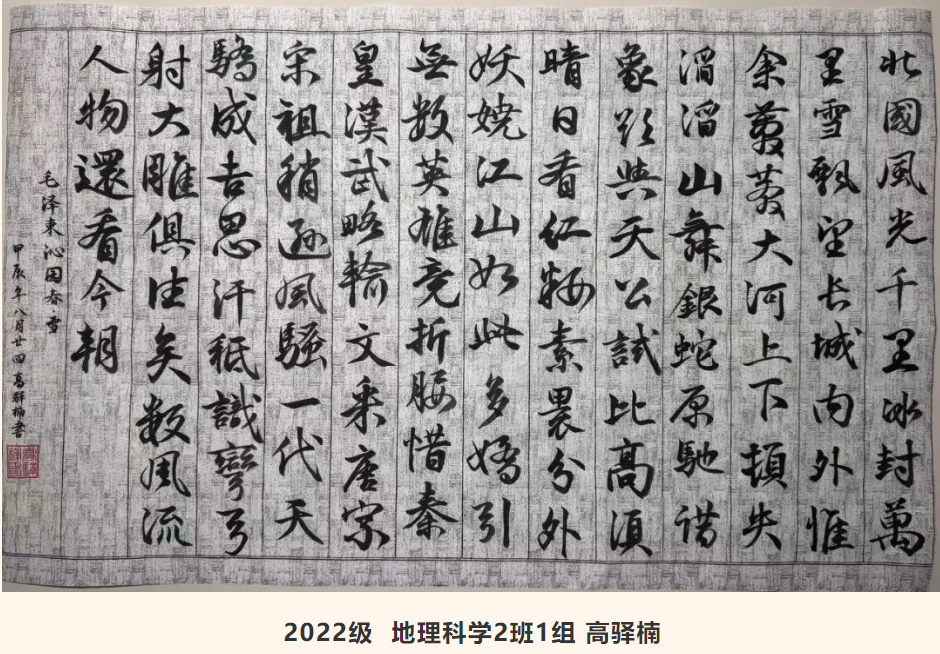 北國風光千里冰封萬
里雪飄望长城内外惟
余莽莽大河上下頓失
滔滔山舞銀蛇原馳蜡
象欲與天公試比高須
晴日看红裝素裹分外
妖娆江山如此多嬌引
無数英雄竞折腰惜秦
皇漢武略輸文采唐宗
宋祖稍逊風騷一代天
驕成吉思汗衹識彎弓
射大雕俱往矣数風流
人物還看今朝
毛泽東 沁園春 雪
甲辰年八月廿四高驛楠書
2022级 地理科学2班1组 高驿楠